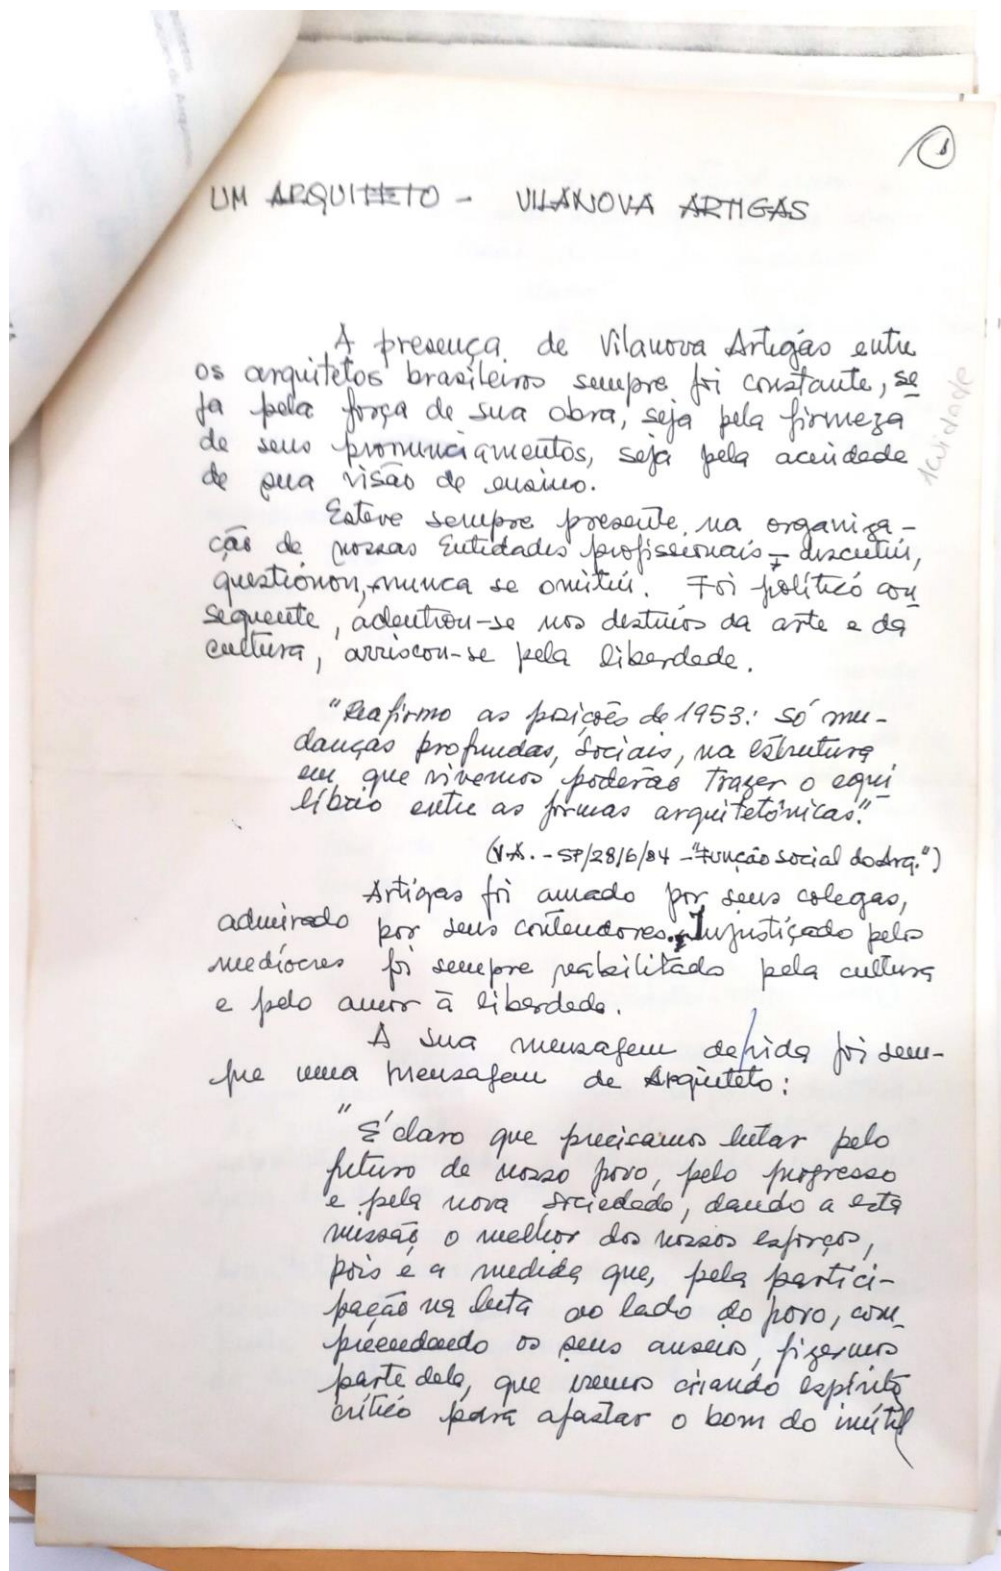 1
UM ARQUITETO - VILANOVA ARTIGAS
A presença de Vilanova Artigas entre
os arquitetos brasileiros sempre foi constante, se
ja pela força de sua obra, seja pela firmeza
de seus pronunciamentos, seja pela acuidade
de sua visão de ensino.
acuidade
Esteve sempre presente na organiza-
ção de nossas Entidades profissionais - discutiu,
questionou, nunca se omitiu. Foi político con
sequente, adentrou-se nos destinos da arte e da
cultura, arriscou-se pela liberdade.
"Reafirmo as posições de 1953: só mu-
danças profundas, sociais, na estrutura
em que vivemos poderão trazer o equi
líbrio entre as formas arquitetônicas."
(V.A. - SP/28/6/84 - "Função social do Arq.")
Artigas foi amado por seus colegas,
admirado por seus contendores. Injustiçado pelos
medíocres foi sempre reabilitado pela cultura
e pelo amor à liberdade.
A sua mensagem de vida foi sem-
pre uma mensagem de Arquiteto:
"É claro que precisamos lutar pelo
futuro de nosso povo, pelo progresso
e pela nova sociedade, dando a esta
missão o melhor dos nossos esforços,
pois é a medida que, pela partici-
pação na luta ao lado do povo, com-
preendendo os seus anseios, fizermos
parte dele, que iremos criando espírito
crítico para afastar o bom do inútil